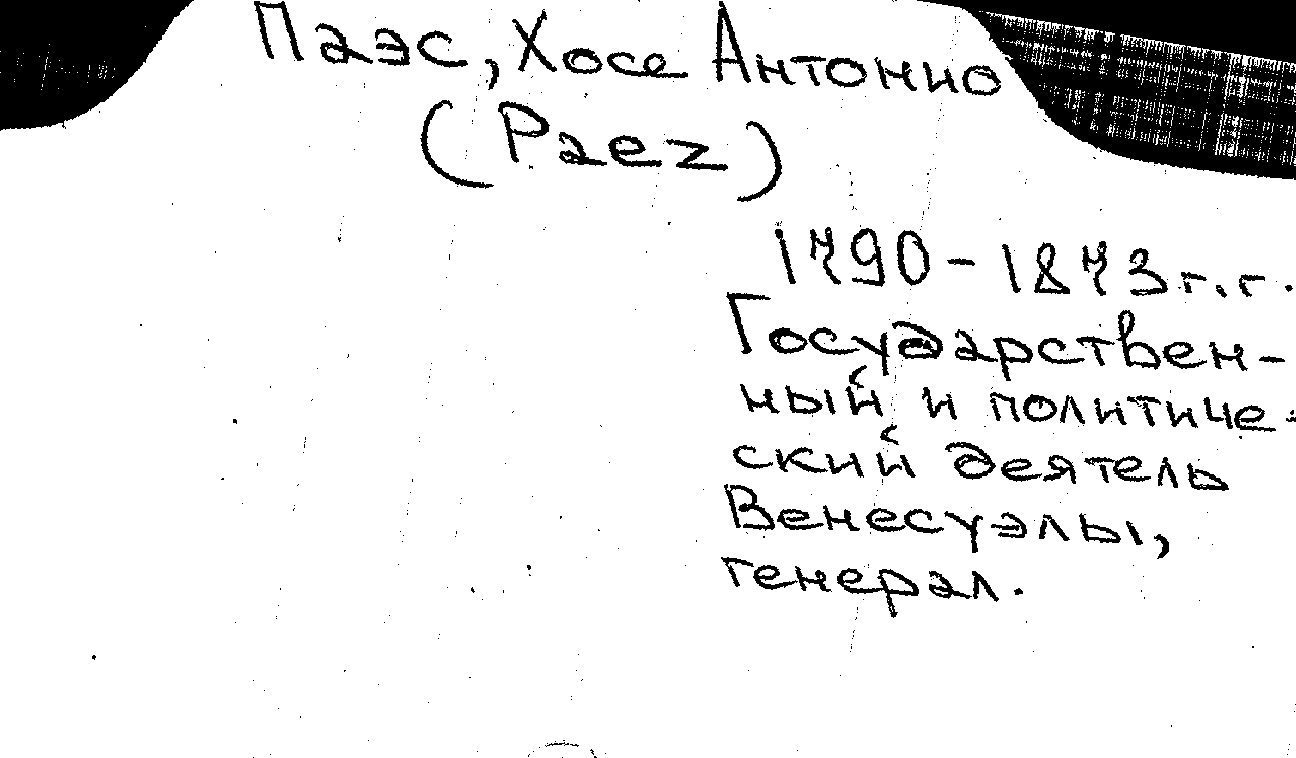 Паэс, Хосе Антонио
(Paez)
1790-1873 г.г.
Государствен-
ный и политиче-
ский деятель
Венесуэлы,
генерал.